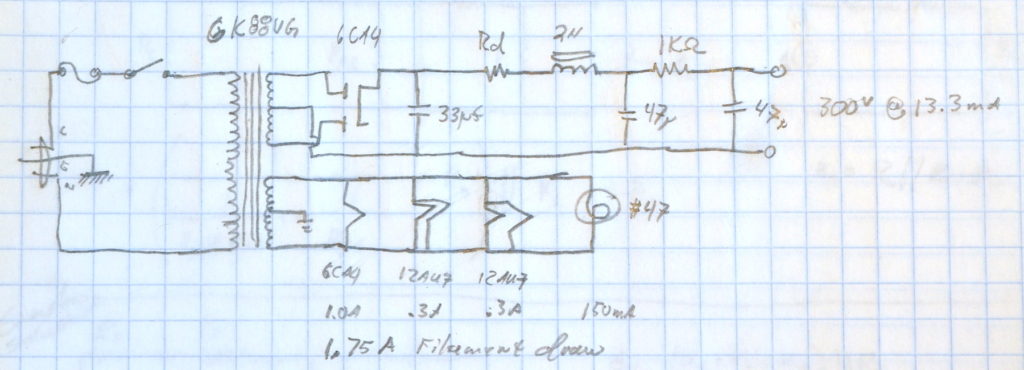 6K88VG 6CA4 Rd 2H 1KΩ
33µf 47µ 47µ 300V @ 13.3 mA
L
G
N
#47
6CA4 12AU7 12AU7
1.0A .3A .3A 150mA
1.75A Filament draw